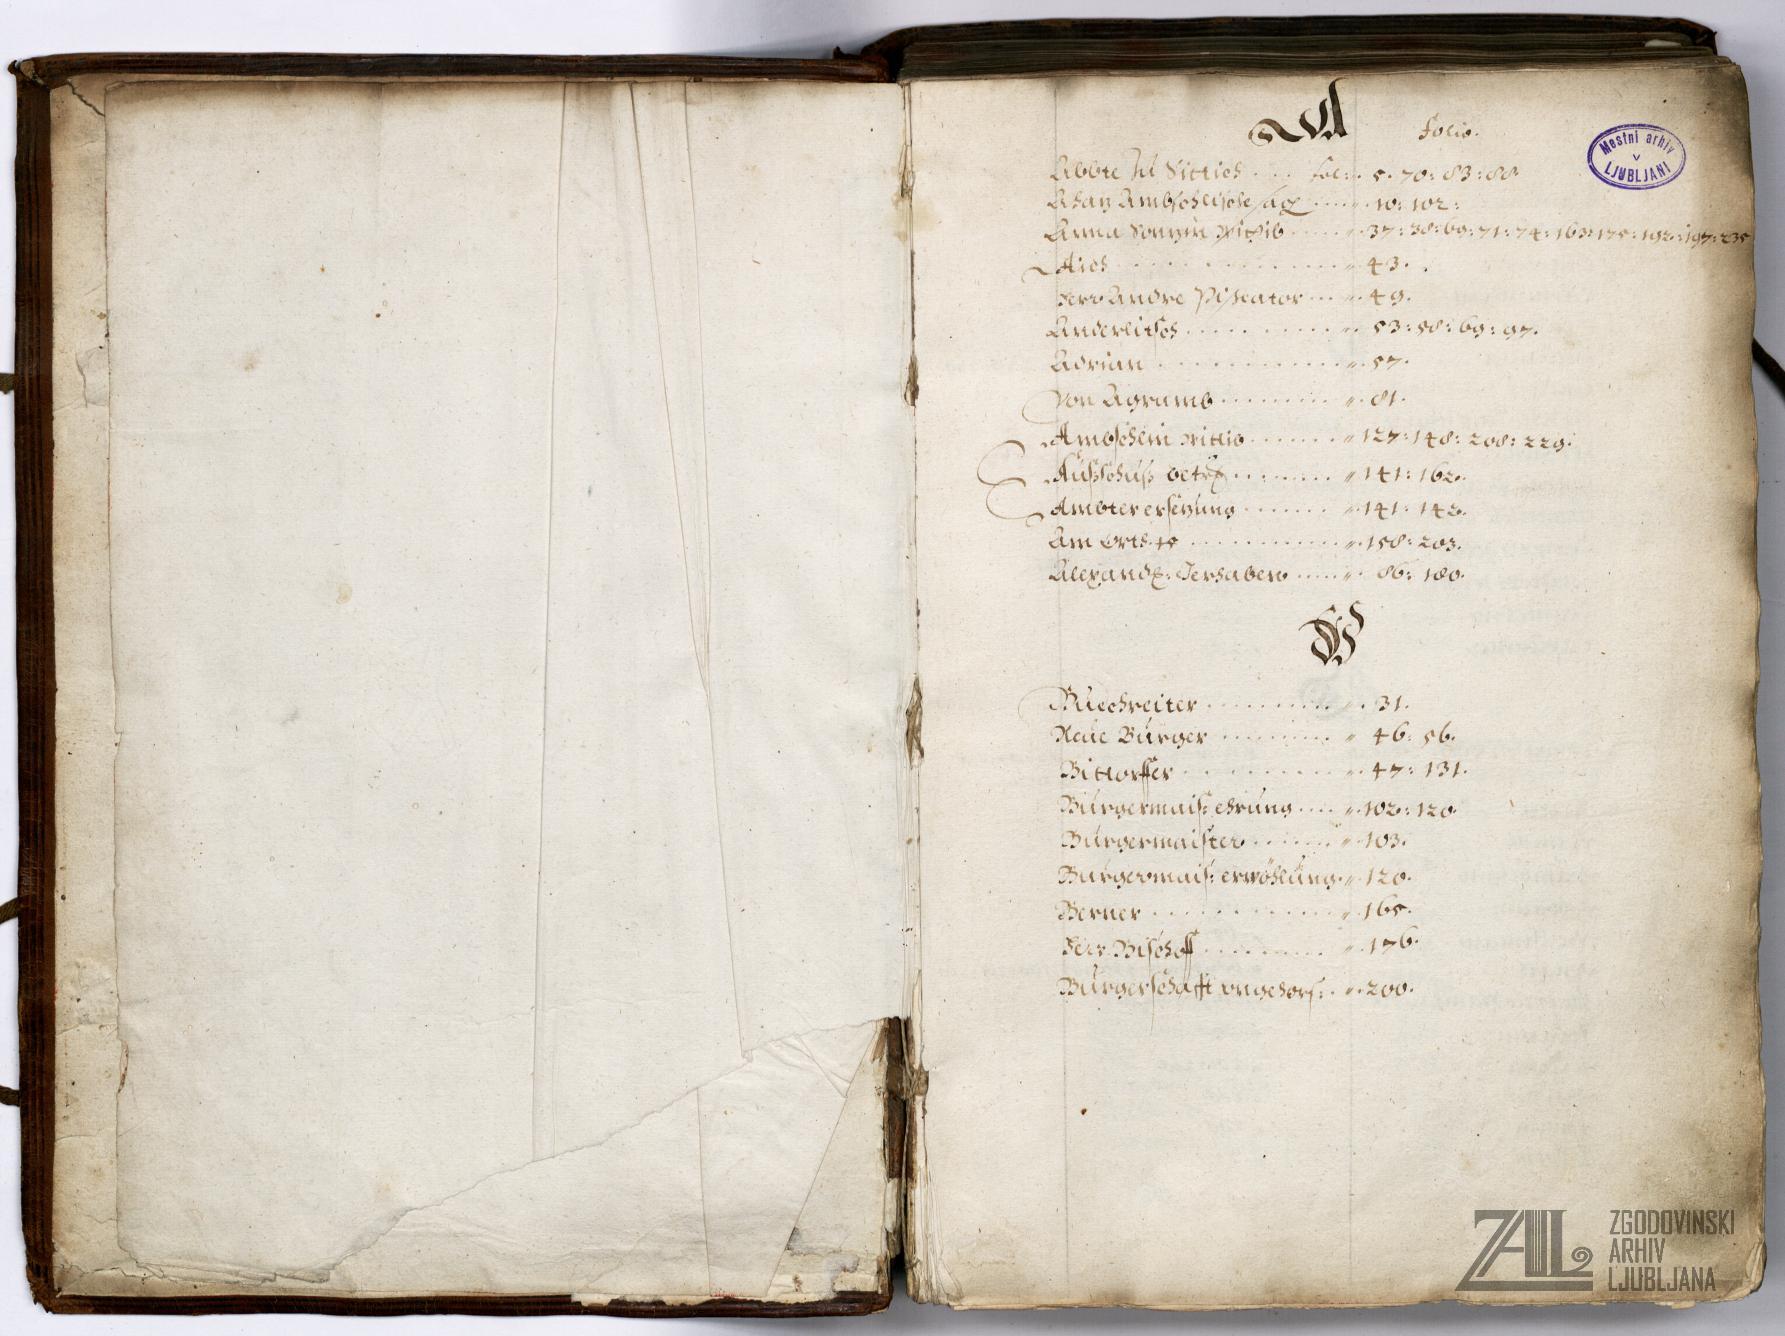 A
folio.
Mestni arhiv
v
LJUBLJANI
Abbte zu Sittich .... fol: 5. 70: 83: 88.
Adam 10: 102:
Anna wittib 37: 38: 69: 71: 74: 163: 175: 192: 197: 235
Aich 43.
Herr Andre Piscator 49.
Anderlitsch 53: 58: 69: 97.
Adrian 57.
Von Agramb 81.
Ambschlin wittib 127: 148: 208: 229.
Außschuß betr 141: 162.
Ambter ersezung 141: 142.
Am Orth 158: 203.
Alexand: 86: 180.
B
Buechreiter 31.
Neue Burger 46: 56.
Bittorffer 47: 131.
Burgermais: ehrung 102: 120.
Burgermaister 103.
Burgermais: erwöhlung 120.
Berner 165.
Herr Bischoff 176.
Burgerschafft vngehors: 200.
ZAL ZGODOVINSKI
ARHIV
LJUBLJANA